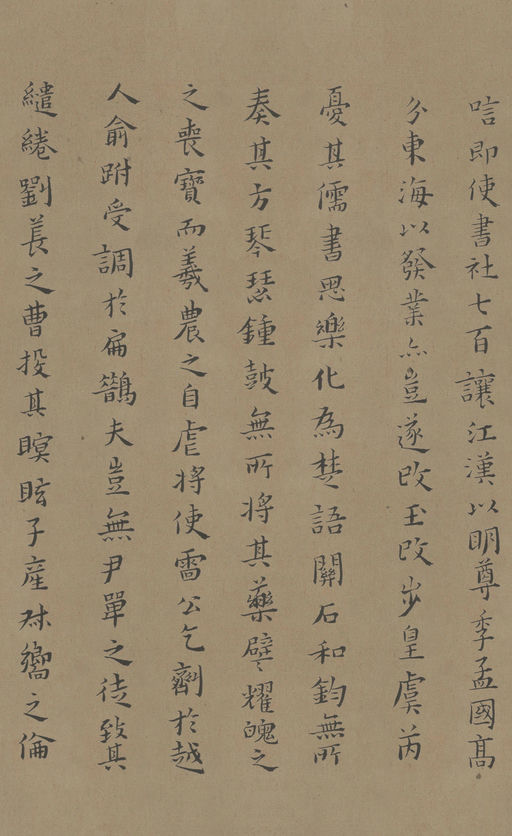 唁即使書社七百讓江漢以明尊季孟國髙
分東海以發業亦豈遂改玉改步皇虞芮
憂其儒書思樂化為楚語關石和鈞無所
奏其方琴瑟鍾鼓無所將其藥躄耀醜之
之喪寶而羲農之自虐將使雷公乞劑於越
人俞跗受調於扁鵲夫豈無尹單之徒致其
繾綣劉萇之曹投其瞑眩子產叔嚮之倫